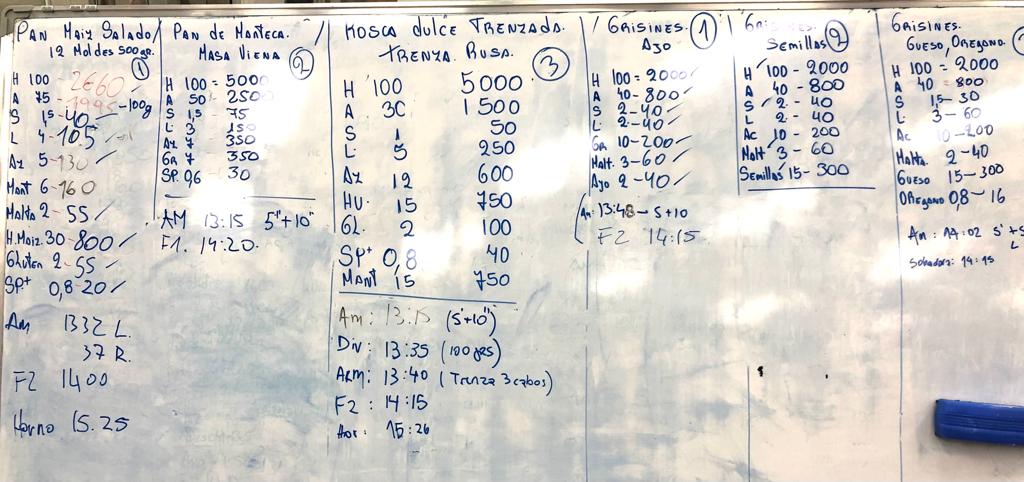 PAN Maiz Salado
12 Moldes 500gr.
①
H 100 - 2660
A 75 - 1995 - 100g
S 1,5 - 40
L 4 - 10.5
Az 5 - 130
Mant 6 - 160
Malta 2 - 55
H.Maiz. 30 - 800
Gluten 2 - 55
SP+ 0,8 - 20
Am 1332 L.
37 R.
F2 1400
Horno 15.25
PAN de Manteca.
MASA VIENA
②
H 100 = 5000
A 50 2500
S 1,5 - 75
L 3 150
Az 7 - 350
GR 7 350
SP. 0,6 30
AM 13:15 5"+10"
F1. 14:20.
ROSCA dulce TRENZADA.
TRENZA RUSA.
③
H 100 5000
A 30 1500
S 1 50
L 5 250
Az 12 600
HU. 15 750
GL. 2 100
SP+ 0,8 40
MANT 15 750
Am: 13:15 (5'+10")
Div: 13:35 (100 grs)
ARM: 13:40 (Trenza 3 cabos)
F2: 14:15
Hor: 15:26
GRISINES
AJO
①
H 100 = 2000
A 40 - 800
S 2 - 40
L 2 - 40
GR 10 - 200
Malt. 3 - 60
Ajo 2 - 40
Am: 13:48 - 5+10
F2 14:15
Semillas ②
H 100 - 2000
A 40 - 800
S 2 - 40
L 2 - 40
Ac 10 - 200
Malt 3 - 60
Semillas 15 - 300
GRISINES.
QUESO, OREGANO.
H 100 = 2000
A 40 = 800
S 15 - 30
L 3 - 60
Ac 10 - 200
Malta. 2 - 40
QUESO 15 - 300
OREGANO 0,8 - 16
Am: 14:02 5'+5
L
Sobadora: 14:15